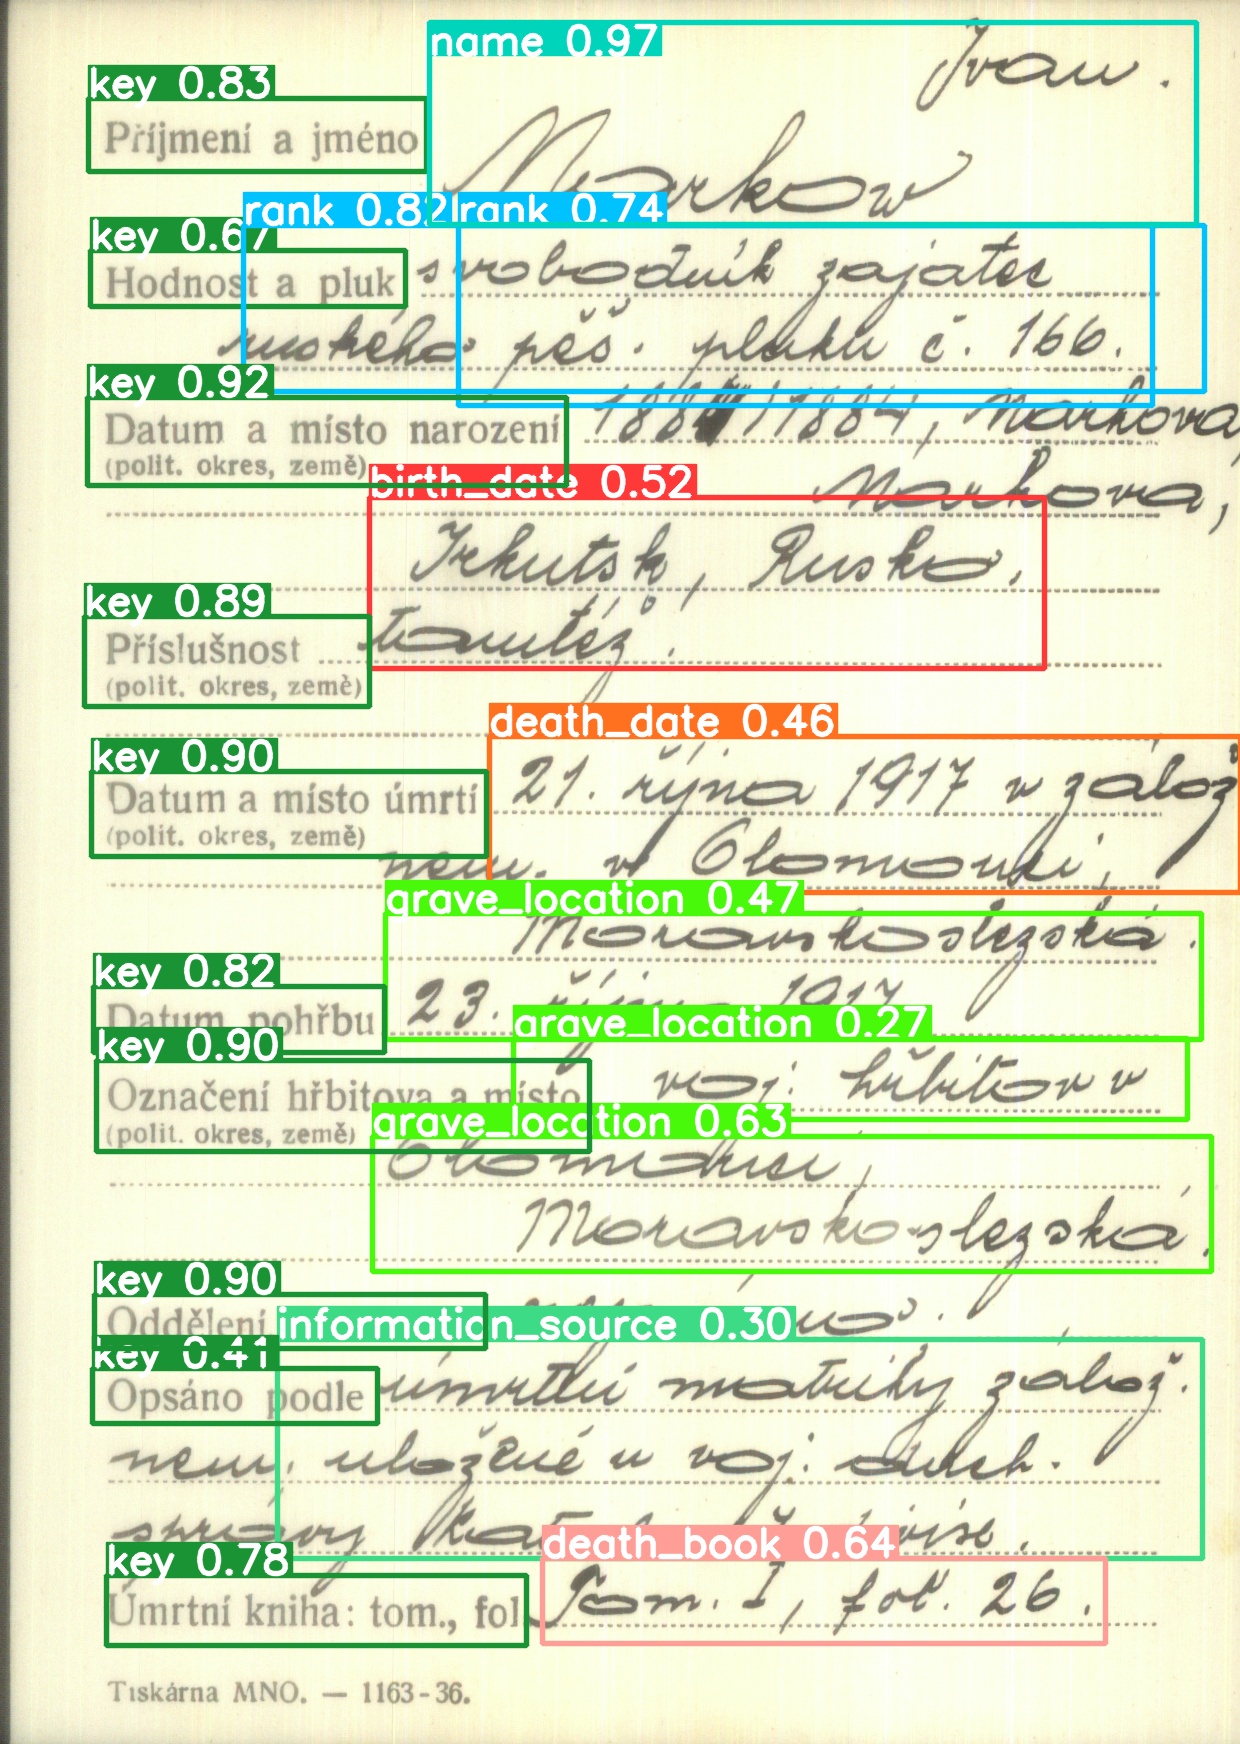 name 0.97
Ivan.
key 0.83
Příjmení a jméno
Markow
rank 0.82 rank 0.74
key 0.67
Hodnost a pluk svobodník zajatec
ruského pěš. pluku č. 166.
key 0.92
Datum a místo narození 1884, Markova,
(polit. okres, země)
birth_date 0.52
Markova,
Irkutsk, Rusko.
key 0.89
Příslušnost tamtéž.
(polit. okres, země)
death_date 0.46
key 0.90
Datum a místo úmrtí 21. října 1917 v zálož
(polit. okres, země)
nem. v Olomouci,
grave_location 0.47
Moravskoslezská.
key 0.82
Datum pohřbu 23. října 1917
grave_location 0.27
key 0.90
Označení hřbitova a místo voj. hřbitov v
(polit. okres, země)
grave_location 0.63
Olomouci,
Moravskoslezská.
key 0.90
Oddělení
information_source 0.30
key 0.41
Opsáno podle úmrtní matriky zálož.
nem. uložené u voj. duch.
správy
death_book 0.64
key 0.78
Úmrtní kniha: tom., fol. Tom. I, fol. 26.
Tiskárna MNO. — 1163-36.